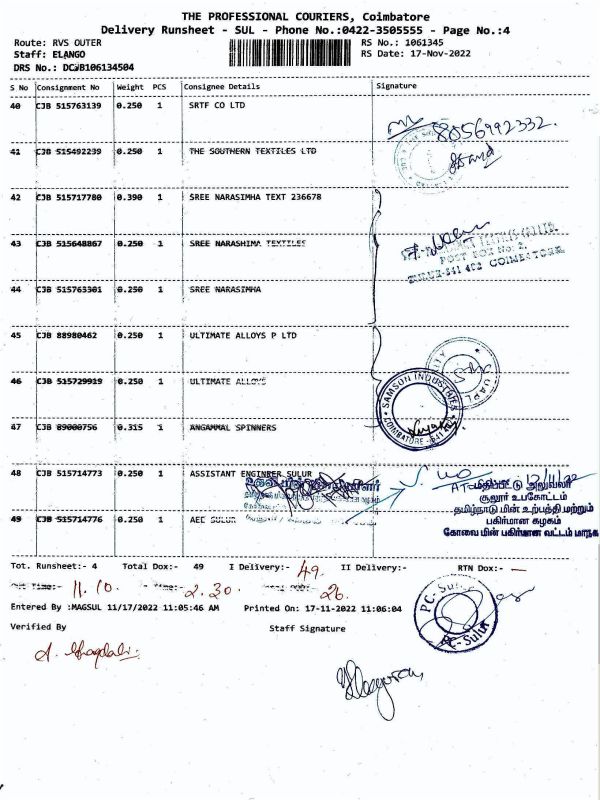 THE PROFESSIONAL COURIERS, Coimbatore
Delivery Runsheet - SUL - Phone No.:0422-3505555 - Page No.:4
Route: RVS OUTER
Staff: ELANGO
DRS No.: DCJB106134504
RS No.: 1061345
RS Date: 17-Nov-2022
S No Consignment No Weight PCS Consignee Details Signature
40 CJB 515763139 0.250 1 SRTF CO LTD
8056992332.
41 CJB 515492239 0.250 1 THE SOUTHERN TEXTILES LTD
42 CJB 515717780 0.390 1 SREE NARASIMHA TEXT 236678
43 CJB 515648867 0.250 1 SREE NARASHIMA TEXTILES
POST BOX No: 2,
SULUR-641 402 COIMBATORE
44 CJB 515763301 0.250 1 SREE NARASIMHA
45 CJB 88980462 0.250 1 ULTIMATE ALLOYS P LTD
46 CJB 515729919 0.250 1 ULTIMATE ALLOYS
SAMSON INDUSTRIES
COIMBATORE - 641 402
47 CJB 89000756 0.315 1 ANGAMMAL SPINNERS
48 CJB 515714773 0.250 1 ASSISTANT ENGINEER SULUR
மதிப்பீட்டு அலுவலர்
சூலூர் உபகோட்டம்
தமிழ்நாடு மின் உற்பத்தி மற்றும்
பகிர்மான கழகம்
கோவை மின் பகிர்மான வட்டம் மாநகர்
49 CJB 515714776 0.250 1 AEC SULUR
Tot. Runsheet:- 4 Total Dox:- 49 I Delivery:- 49. II Delivery:- RTN Dox:- —
11.10. 2.30. 26.
Entered By :MAGSUL 11/17/2022 11:05:46 AM Printed On: 17-11-2022 11:06:04
Verified By Staff Signature
PC-Sulur
PC-Sulur